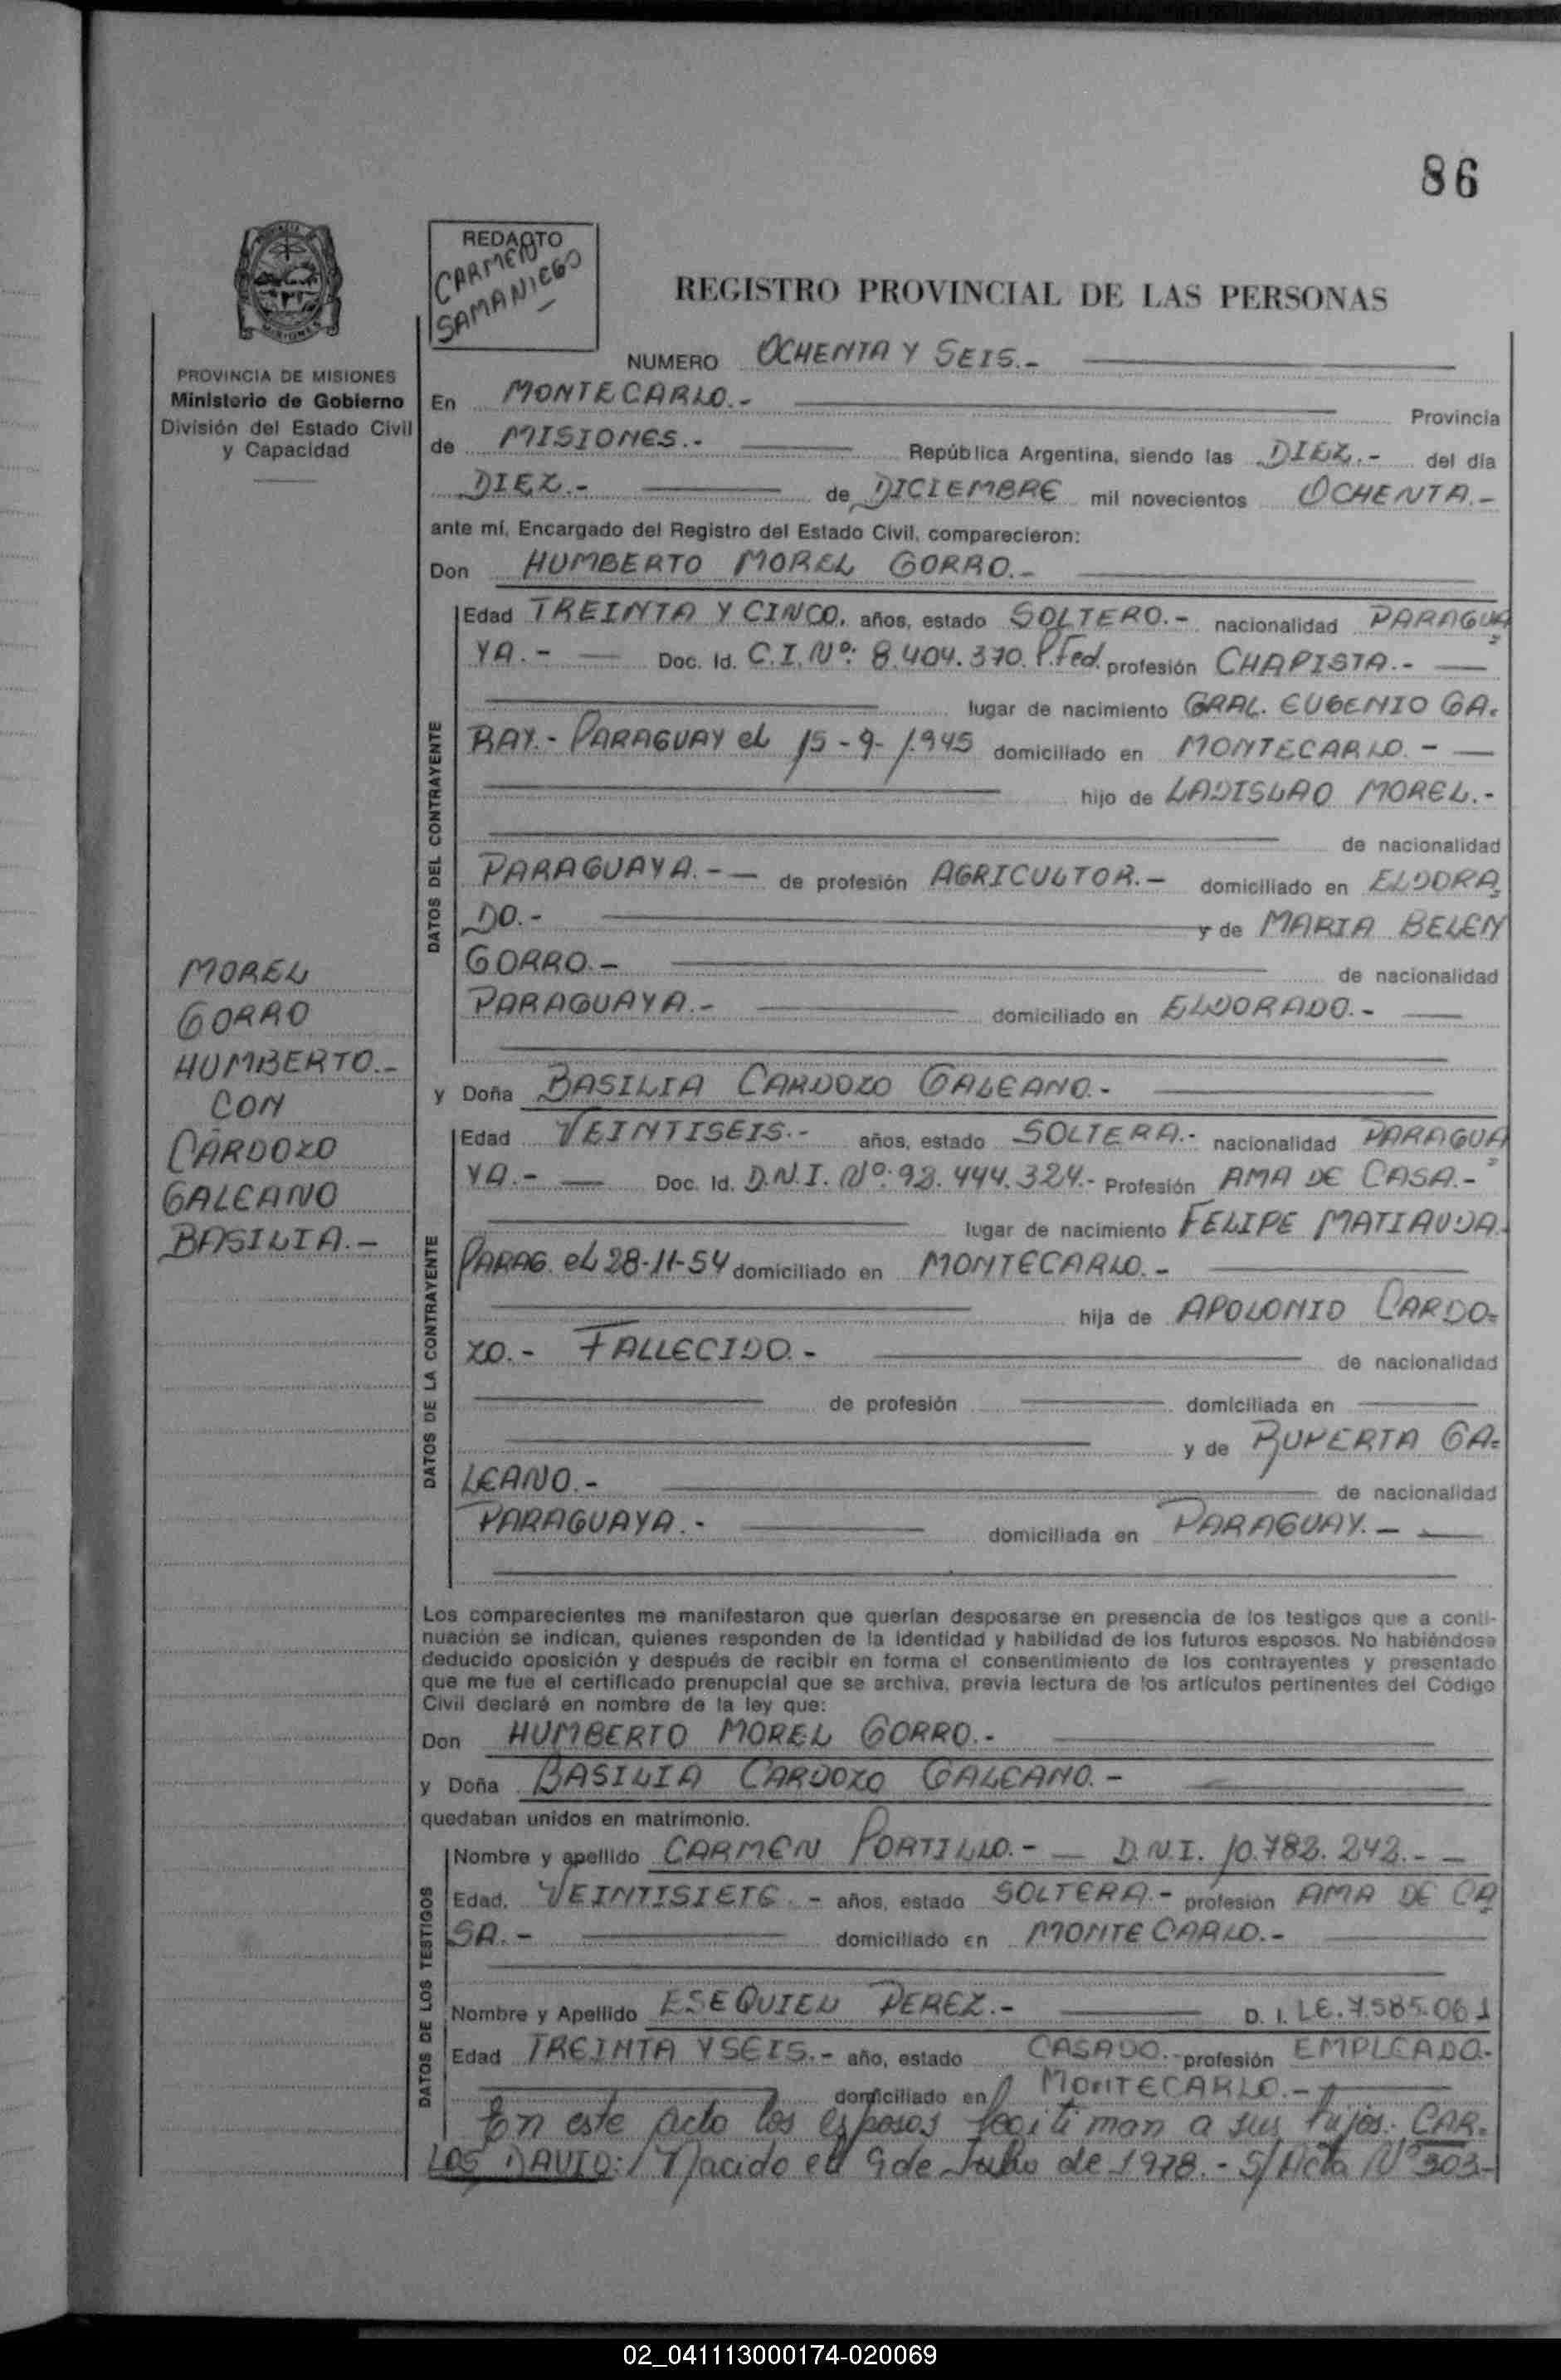 86
REDACTO
CARMEN
SAMANIEGO
REGISTRO PROVINCIAL DE LAS PERSONAS
PROVINCIA DE MISIONES
Ministerio de Gobierno
División del Estado Civil
y Capacidad
NUMERO OCHENTA Y SEIS.-
En MONTECARLO.- Provincia
de MISIONES.- República Argentina, siendo las DIEZ.- del día
DIEZ.- de DICIEMBRE mil novecientos OCHENTA.-
ante mí, Encargado del Registro del Estado Civil, comparecieron:
Don HUMBERTO MOREL GORRO.-
DATOS DEL CONTRAYENTE
Edad TREINTA Y CINCO. años, estado SOLTERO.- nacionalidad PARAGUA=
YA.- Doc. Id. C.I. Nº: 8.404.370. P.Fed. profesión CHAPISTA.-
lugar de nacimiento GRAL. EUGENIO GA.
RAY.- PARAGUAY el 15-9-1.945 domiciliado en MONTECARLO.-
hijo de LADISLAO MOREL.-
de nacionalidad
PARAGUAYA.- de profesión AGRICULTOR.- domiciliado en ELDORA=
DO.- y de MARIA BELEN
GORRO.- de nacionalidad
PARAGUAYA.- domiciliado en ELDORADO.-
MOREL
GORRO
HUMBERTO.-
CON
CARDOZO
GALEANO
BASILIA.-
y Doña BASILIA CARDOZO GALEANO.-
DATOS DE LA CONTRAYENTE
Edad VEINTISEIS.- años, estado SOLTERA.- nacionalidad PARAGUA=
YA.- Doc. Id. D.N.I. Nº: 92.444.324.- Profesión AMA DE CASA.-
lugar de nacimiento FELIPE MATIAUDA.
PARAG. el 28-11-54 domiciliado en MONTECARLO.-
hija de APOLONIO CARDO=
ZO.- FALLECIDO.- de nacionalidad
de profesión domiciliada en
y de RUPERTA GA=
LEANO.- de nacionalidad
PARAGUAYA.- domiciliada en PARAGUAY.-
Los comparecientes me manifestaron que querían desposarse en presencia de los testigos que a conti-
nuación se indican, quienes responden de la identidad y habilidad de los futuros esposos. No habiéndose
deducido oposición y después de recibir en forma el consentimiento de los contrayentes y presentado
que me fue el certificado prenupcial que se archiva, previa lectura de los artículos pertinentes del Código
Civil declaré en nombre de la ley que:
Don HUMBERTO MOREL GORRO.-
y Doña BASILIA CARDOZO GALEANO.-
quedaban unidos en matrimonio.
DATOS DE LOS TESTIGOS
Nombre y apellido CARMEN PORTILLO.- D.N.I. 10.782.242.-
Edad, VEINTISIETE.- años, estado SOLTERA.- profesión AMA DE CA
SA.- domiciliado en MONTECARLO.-
Nombre y Apellido ESEQUIEL PEREZ.- D. I. LE.7.585.061
Edad TREINTA Y SEIS.- año, estado CASADO.- profesión EMPLEADO.-
domiciliado en MONTECARLO.-
En este Acto los esposos legitiman a sus hijos: CAR=
LOS DAVID: Nacido el 9 de Julio de 1978.- S/Acta Nº 303-
02_041113000174-020069